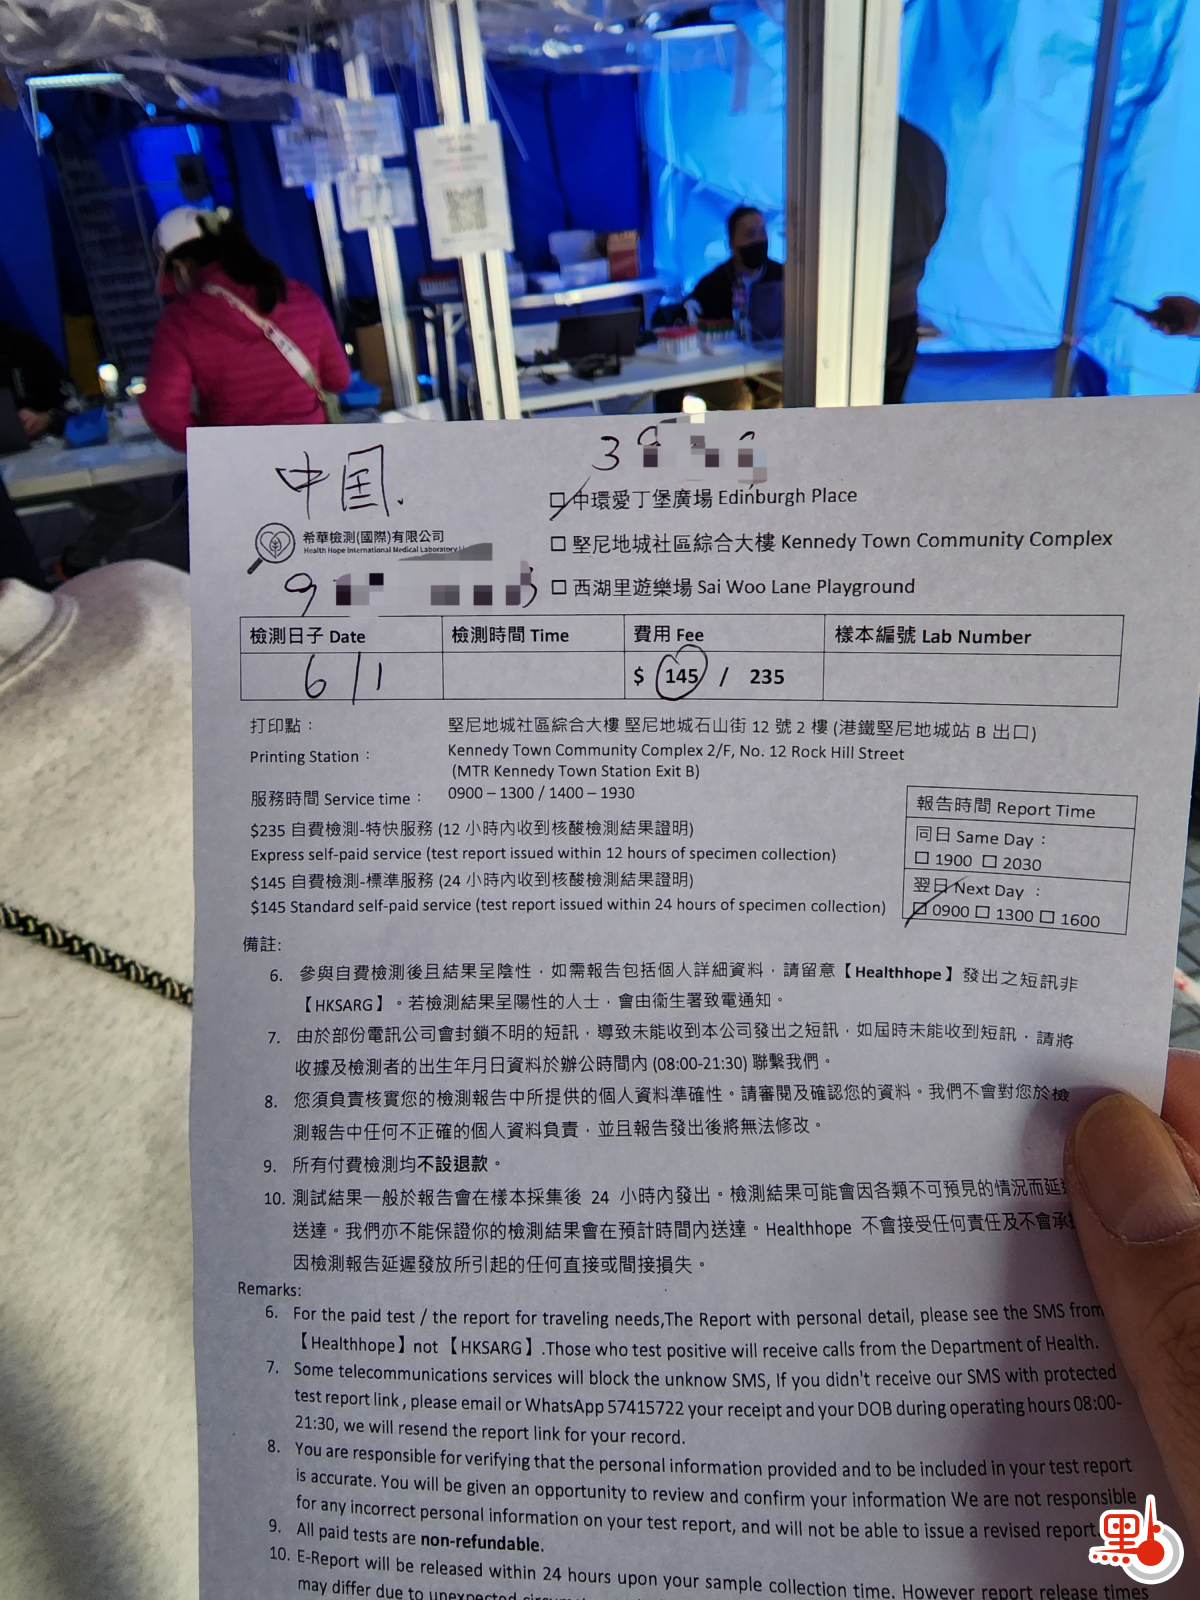 中国.
3
希華檢測(國際)有限公司
Health Hope International Medical Laboratory
9
中環愛丁堡廣場 Edinburgh Place
堅尼地城社區綜合大樓 Kennedy Town Community Complex
西湖里遊樂場 Sai Woo Lane Playground
檢測日子 Date 檢測時間 Time 費用 Fee 樣本編號 Lab Number
6/1 $ 145 / 235
打印點： 堅尼地城社區綜合大樓 堅尼地城石山街 12 號 2 樓 (港鐵堅尼地城站 B 出口)
Printing Station： Kennedy Town Community Complex 2/F, No. 12 Rock Hill Street
(MTR Kennedy Town Station Exit B)
服務時間 Service time： 0900 – 1300 / 1400 – 1930
$235 自費檢測-特快服務 (12 小時內收到核酸檢測結果證明)
Express self-paid service (test report issued within 12 hours of specimen collection)
$145 自費檢測-標準服務 (24 小時內收到核酸檢測結果證明)
$145 Standard self-paid service (test report issued within 24 hours of specimen collection)
報告時間 Report Time
同日 Same Day：
□ 1900 □ 2030
翌日 Next Day ：
□ 0900 □ 1300 □ 1600
備註:
6. 參與自費檢測後且結果呈陰性，如需報告包括個人詳細資料，請留意【Healthhope】發出之短訊非
【HKSARG】。若檢測結果呈陽性的人士，會由衞生署致電通知。
7. 由於部份電訊公司會封鎖不明的短訊，導致未能收到本公司發出之短訊，如屆時未能收到短訊，請將
收據及檢測者的出生年月日資料於辦公時間內 (08:00-21:30) 聯繫我們。
8. 您須負責核實您的檢測報告中所提供的個人資料準確性。請審閱及確認您的資料。我們不會對您於檢
測報告中任何不正確的個人資料負責，並且報告發出後將無法修改。
9. 所有付費檢測均不設退款。
10. 測試結果一般於報告會在樣本採集後 24 小時內發出。檢測結果可能會因各類不可預見的情況而延
送達。我們亦不能保證你的檢測結果會在預計時間內送達。Healthhope 不會接受任何責任及不會承
因檢測報告延遲發放所引起的任何直接或間接損失。
Remarks:
6. For the paid test / the report for traveling needs,The Report with personal detail, please see the SMS from
【Healthhope】not 【HKSARG】.Those who test positive will receive calls from the Department of Health.
7. Some telecommunications services will block the unknow SMS, If you didn't receive our SMS with protected
test report link , please email or WhatsApp 57415722 your receipt and your DOB during operating hours 08:00-
21:30, we will resend the report link for your record.
8. You are responsible for verifying that the personal information provided and to be included in your test report
is accurate. You will be given an opportunity to review and confirm your information We are not responsible
for any incorrect personal information on your test report, and will not be able to issue a revised report.
9. All paid tests are non-refundable.
10. E-Report will be released within 24 hours upon your sample collection time. However report release times
may differ due to unexpected
里